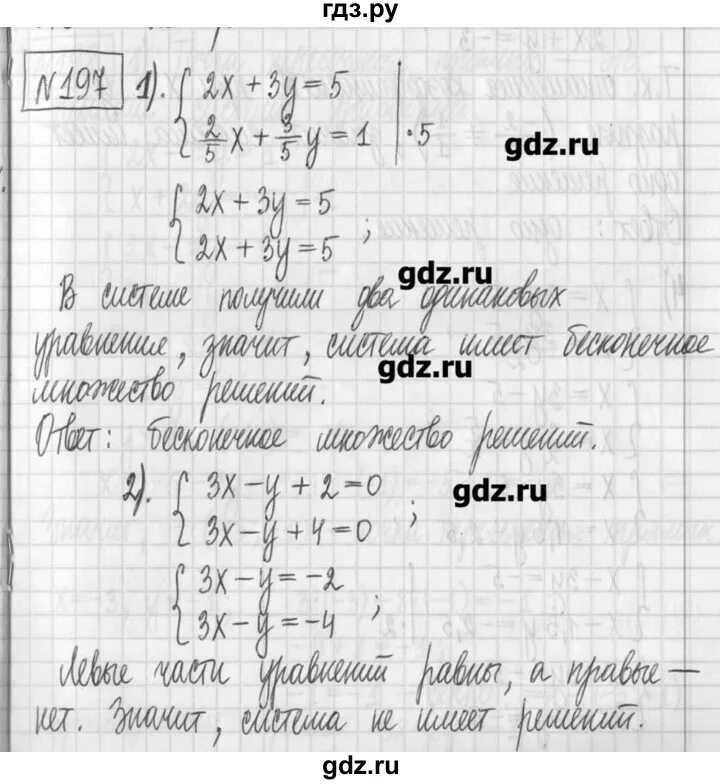 гдз.ру
№197 1). { 2x + 3y = 5
2/5 x + 3/5 y = 1 | ·5
gdz.ru
{ 2x + 3y = 5
2x + 3y = 5 ;
gdz.ru
В системе получили два одинаковых
уравнения, значит, система имеет бесконечное
gdz.ru
множество решений.
Ответ: бесконечное множество решений.
2). { 3x – y + 2 = 0
gdz.ru
3x – y + 4 = 0 ;
{ 3x – y = –2
3x – y = –4 ;
Левые части уравнений равны, а правые –
нет. Значит, система не имеет решений.
gdz.ru